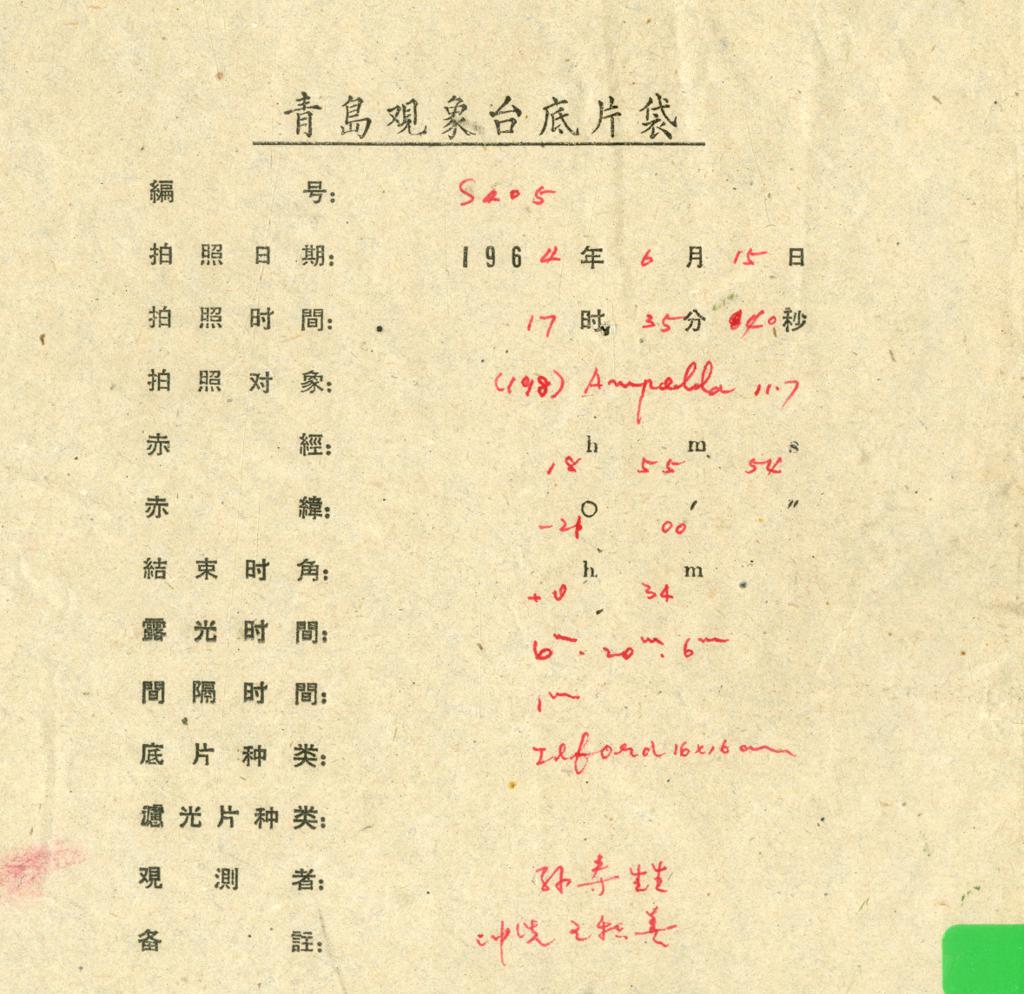 青島观象台底片袋
編号: S405
拍照日期: 1964年6月15日
拍照时間: 17时35分40秒
拍照对象: (198) Ampella 11.7
赤經: 18h 55m 54s
赤緯: -21° 00′ ″
結束时角: +0h 34m
露光时間: 6m. 20m. 6m
間隔时間: 1m
底片种类: Ilford 16x16 cm
濾光片种类:
观測者: 孙寿
备註: 冲洗 王